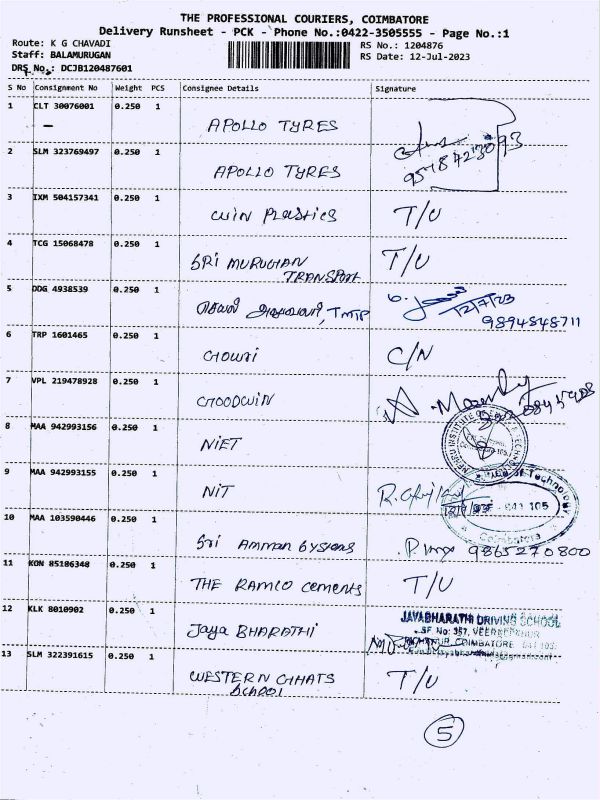 THE PROFESSIONAL COURIERS, COIMBATORE
Delivery Runsheet - PCK - Phone No.:0422-3505555 - Page No.:1
Route: K G CHAVADI RS No.: 1204876
Staff: BALAMURUGAN RS Date: 12-Jul-2023
DRS No.: DCJB120487601
S No Consignment No Weight PCS Consignee Details Signature
1 CLT 30076001 0.250 1
APOLLO TYRES
9578423093
2 SLM 323769497 0.250 1
APOLLO TYRES
3 IXM 504157341 0.250 1
WIN PLASTICS T/U
4 TCG 15068478 0.250 1
SRI MURUGHAN T/U
TRANSPORT
5 DDG 4938539 0.250 1
12/7/23
9894848711
6 TRP 1601465 0.250 1
GOWRI C/N
7 VPL 219478928 0.250 1
GOODWIN
8 MAA 942993156 0.250 1
NIET
9 MAA 942993155 0.250 1
NIT
641 105
Coimbatore
10 MAA 103590446 0.250 1
Sri Amman 9865270800
11 KON 85186348 0.250 1
THE RAMCO cements T/U
12 KLK 8010902 0.250 1
JAYABHARATHI DRIVING SCHOOL
SF No: 357,
COIMBATORE
Jaya BHARATHI
13 SLM 322391615 0.250 1
WESTERN GHATS T/U
SCHOOL
5